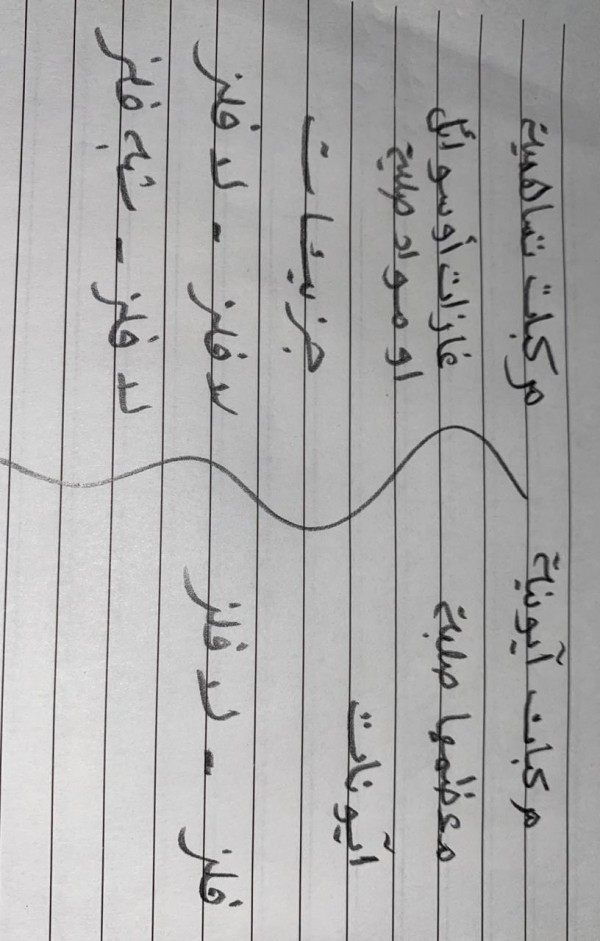 مركبات أيونية
معظمها صلبة
أيونات
فلز - لا فلز
مركبات تساهمية
غازات أو سوائل
او مواد صلبة
جزيئات
لا فلز - لا فلز
لا فلز - شبه فلز